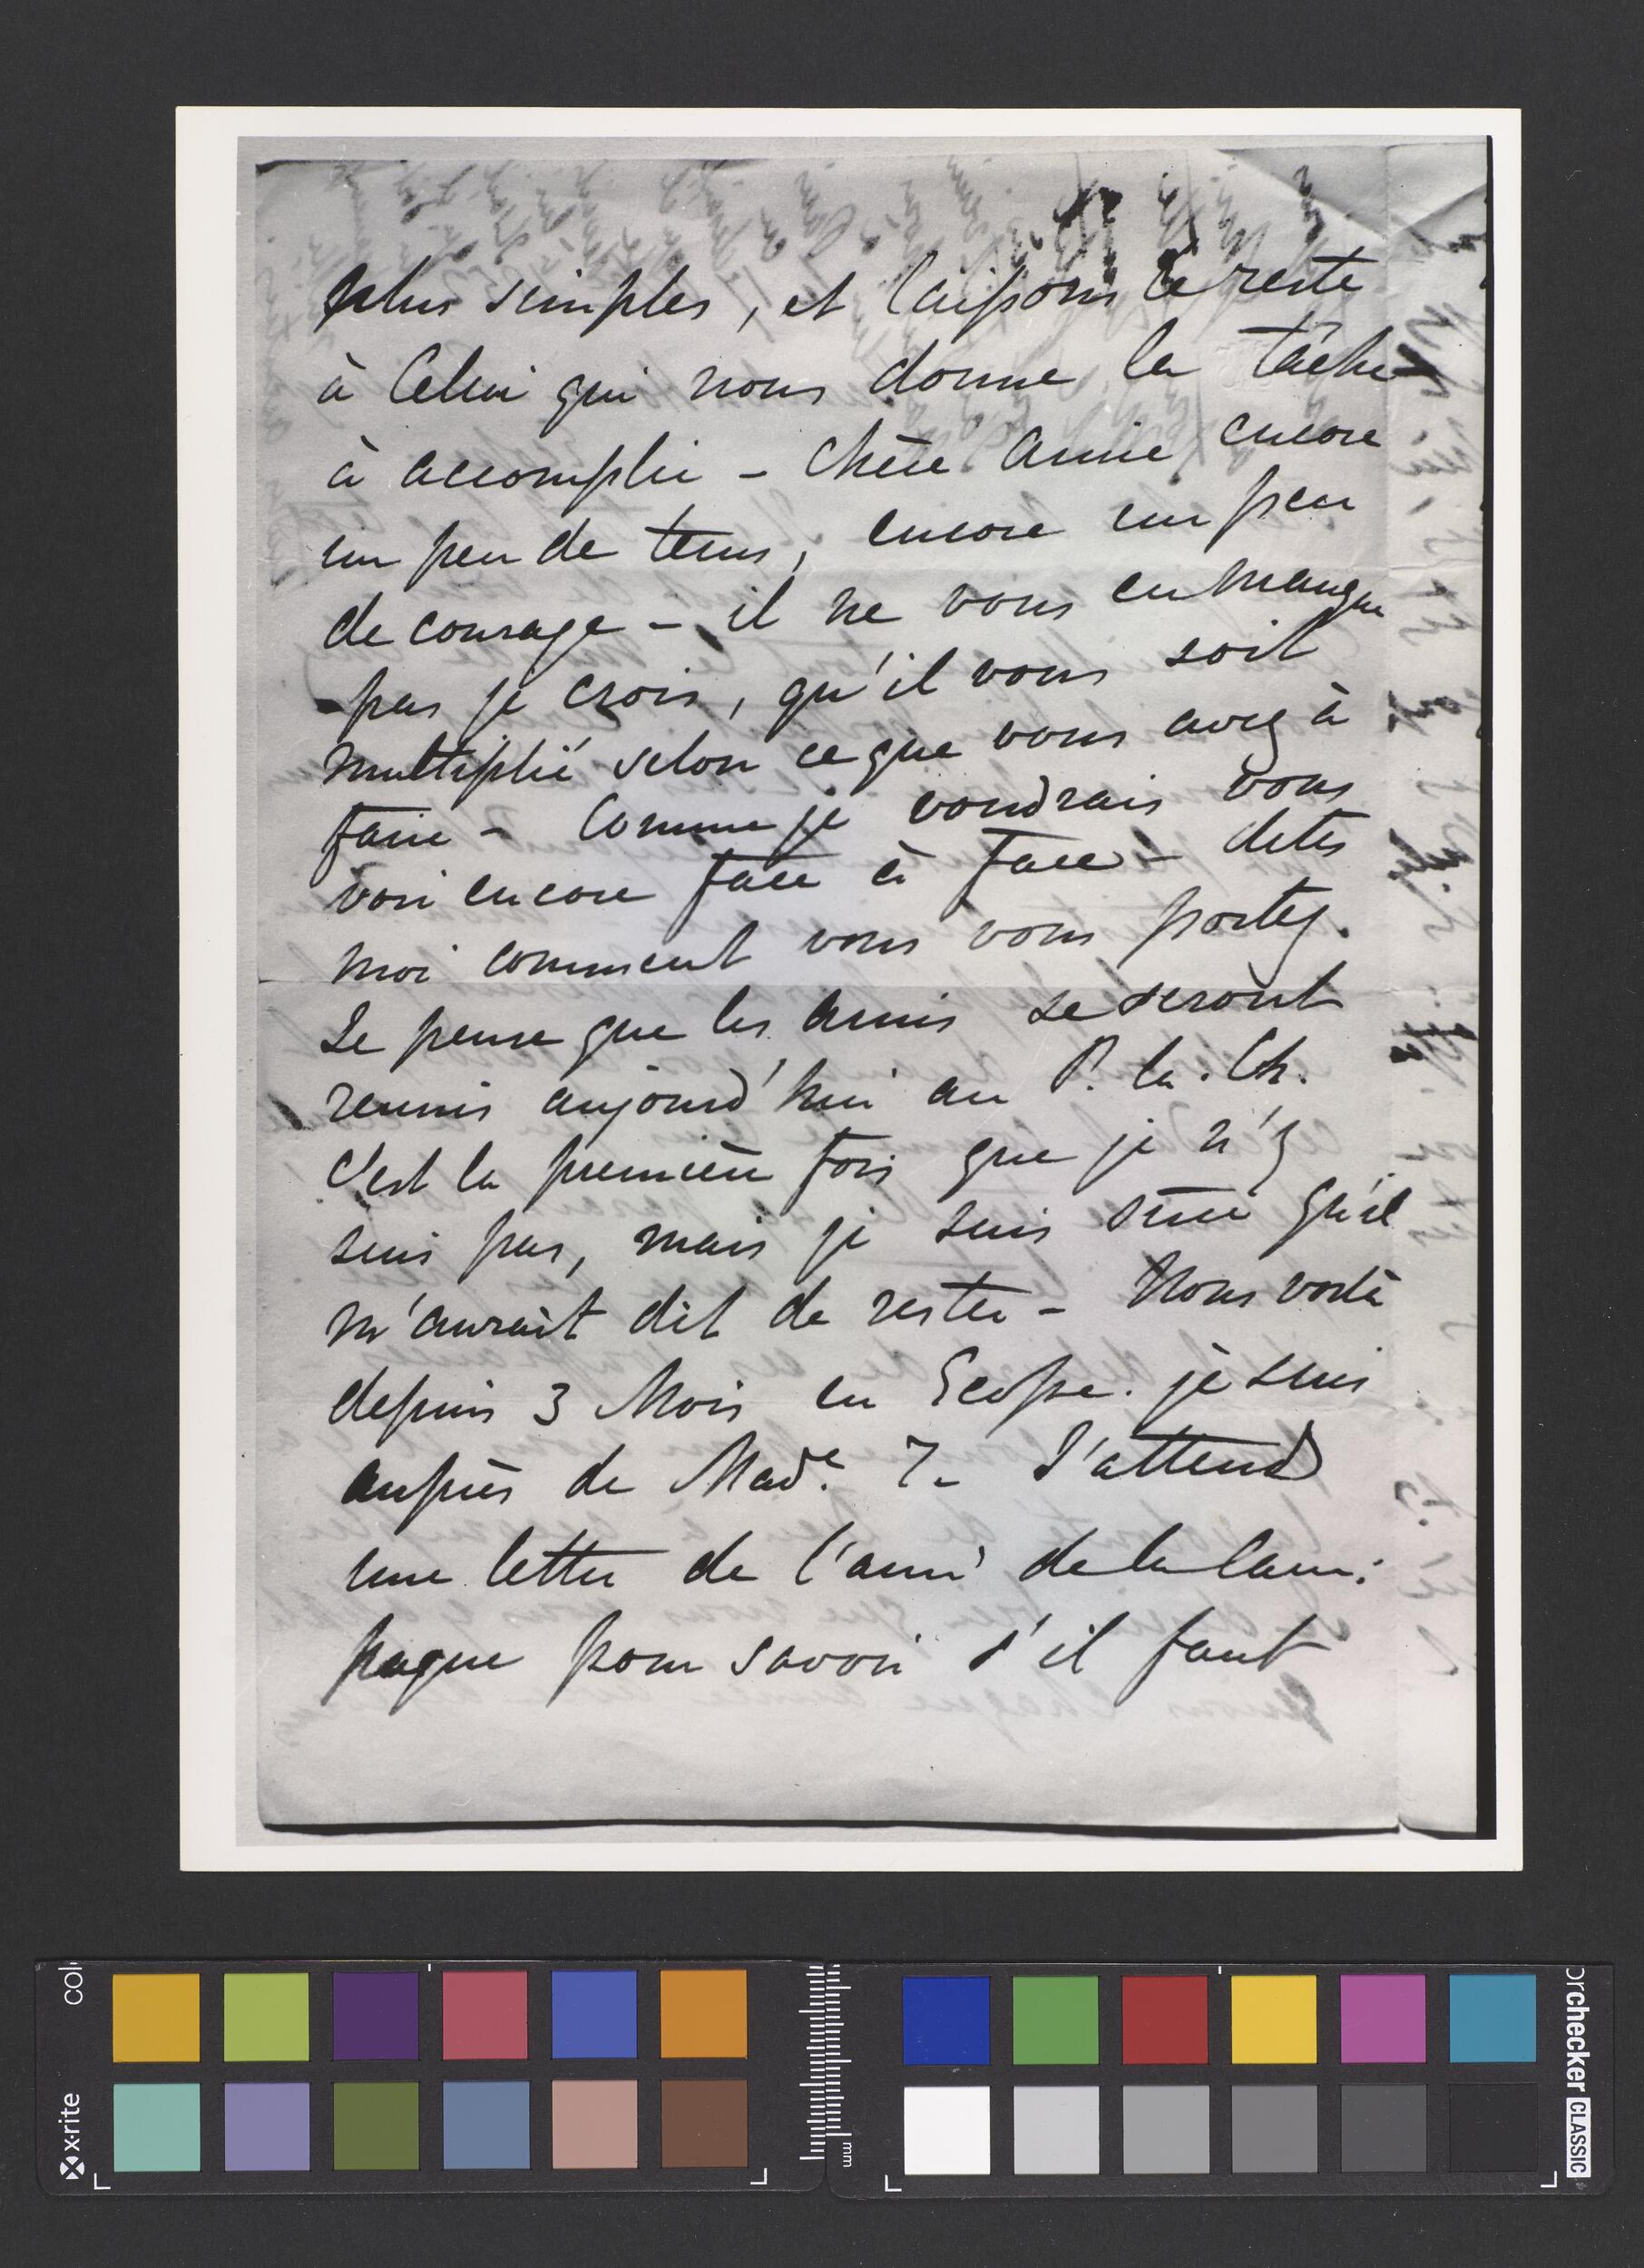 plus simples, et laissons le reste
à Celui qui nous donne la tâche
à accomplir - Chère amie encore
un peu de tems, encore un peu
de courage - il ne vous en manque
pas je crois, qu'il vous soit
multiplié selon ce que vous avez à
faire - Comme je voudrais vous
voir encore face à face - dites
moi comment vous vous portez.
Je pense que les amis se seront
reunis aujourd'hui au P. la. Ch.
C'est la première fois que je n'y
suis pas, mais je suis sûre qu'il
m'aurait dit de rester - Nous voilà
depuis 3 Mois en Ecosse. je suis
auprès de Made. 7. J'attend
une lettre de l'ami de la Cam:
pagne pour savoir s'il faut
x-rite
colorchecker CLASSIC
mm